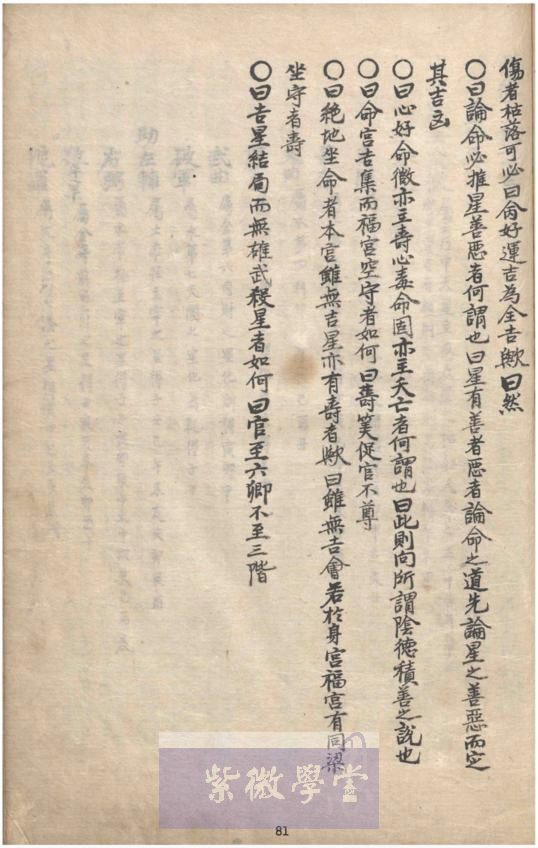 傷者枯落可必曰命好運吉為全吉歟曰然
〇曰論命必推星善惡者何謂也曰星有善者惡者論命之道先論星之善惡而定
其吉凶
〇曰心好命微亦主壽心毒命固亦主夭亡者何謂也曰此則向所謂陰德積善之說也
〇曰命宮吉集而福宮空守者如何曰壽筭促官不尊
〇曰絶地坐命者本宮雖無吉星亦有壽者歟曰雖無吉會若於身宮福宮有同梁
坐守者壽
〇曰吉星結局而無雄武殺星者如何曰官至六卿不至三階
紫微學堂
81